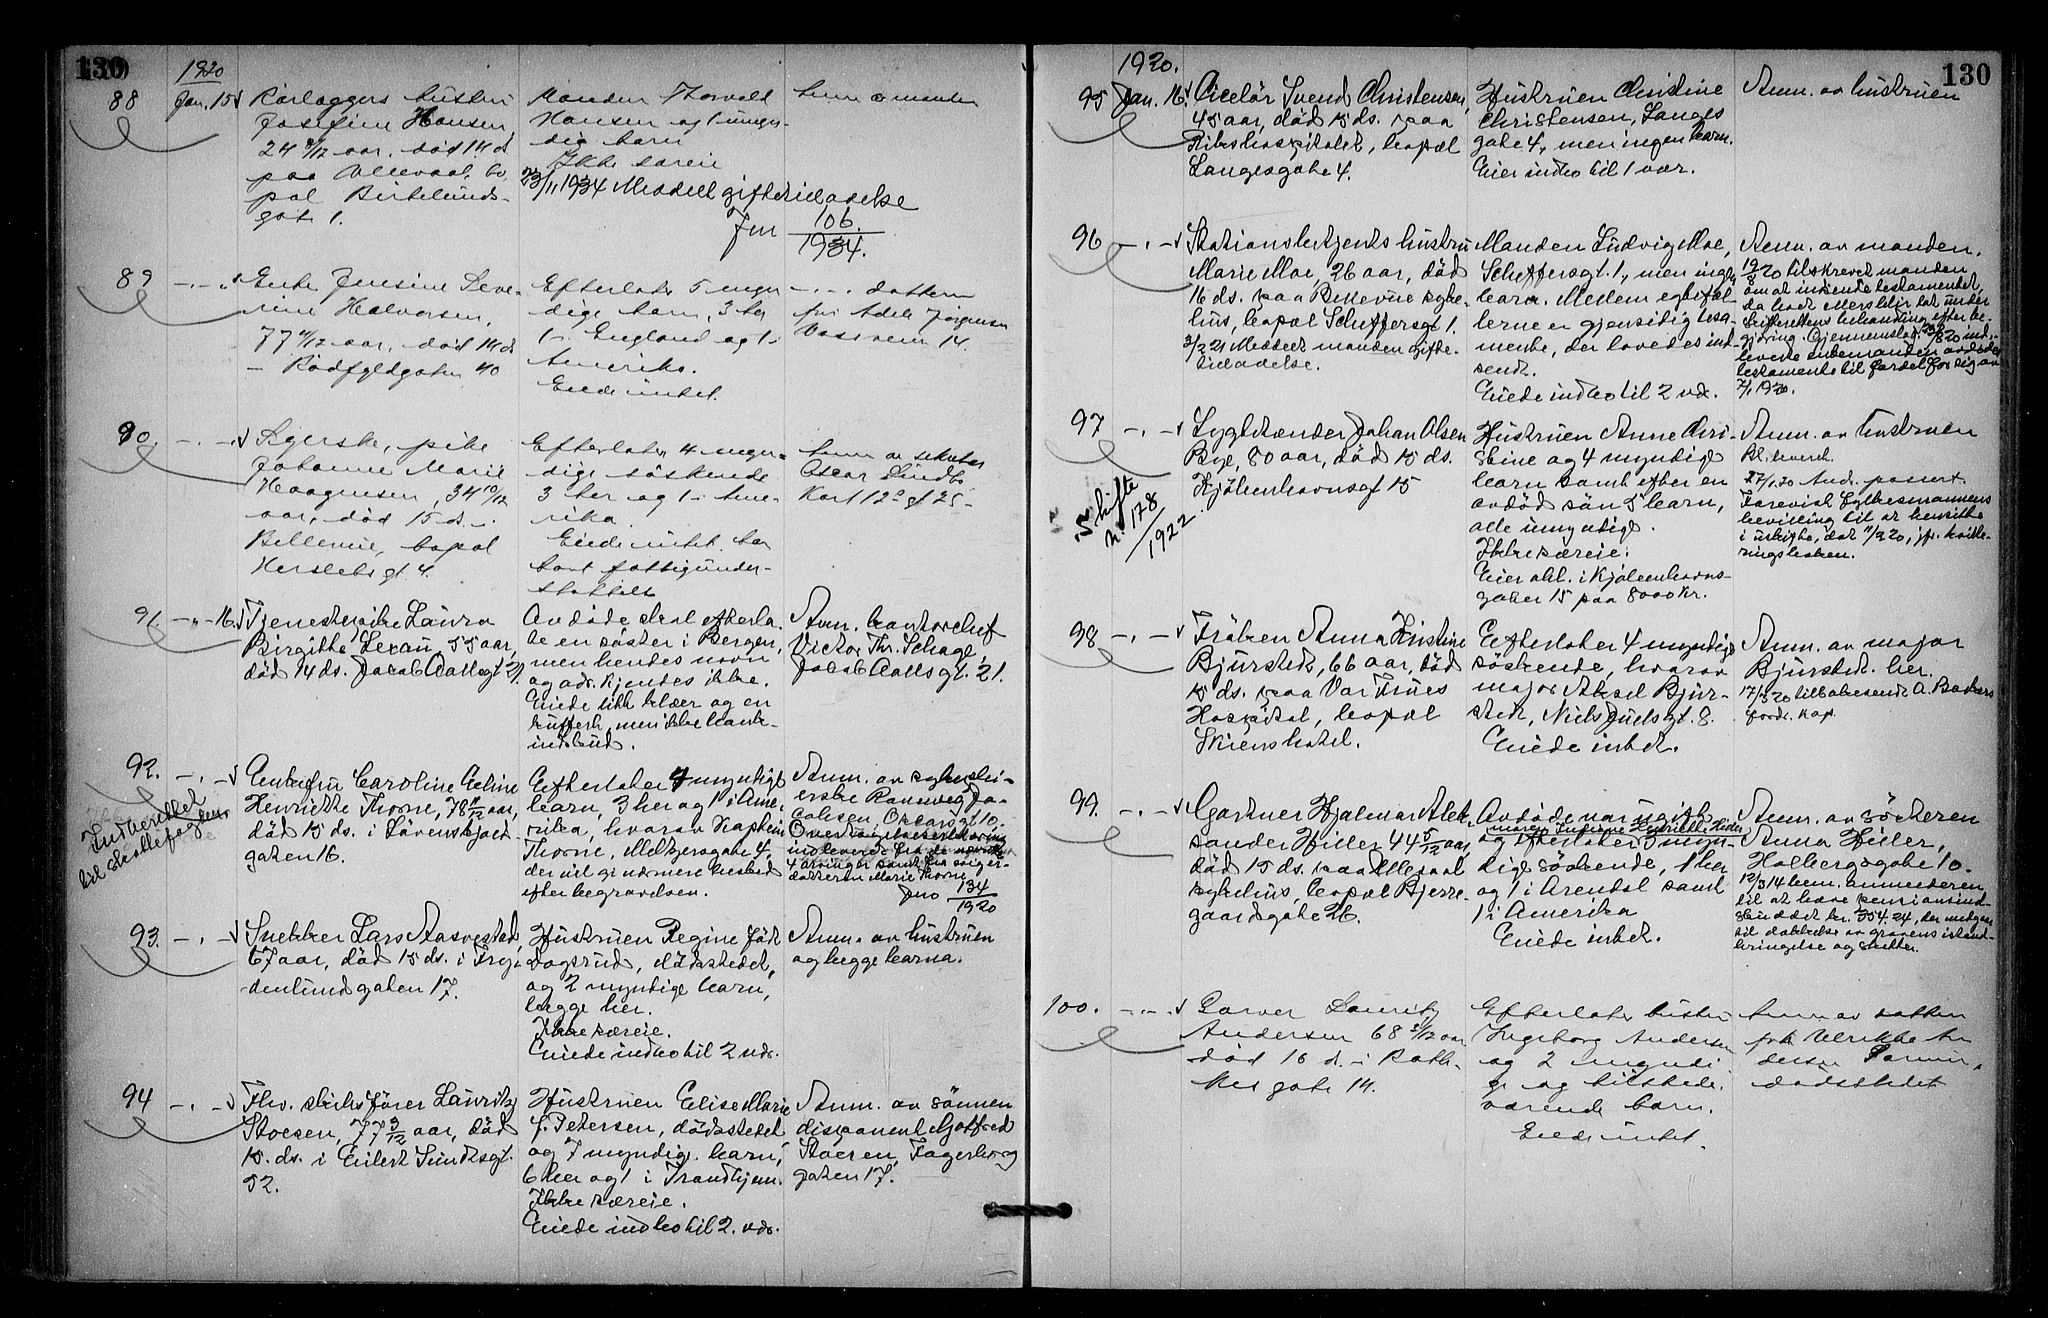 130
1920
88 Jan. 15 Rørlæggers hustru
Josefine Hansen,
24 8/12 aar, død 14 ds
paa Ullevaal, bo
pæl
gate 1.
Manden Thorvald
Hansen og 1 umyn-
dig barn
Ikke særeie
23/11 1934 Meddelt giftetilladelse
Jnr 106
1934.
Anm. av manden
89 Enke Jensine Seve-
rine Halvorsen,
77 aar, død 14 ds
- Rødfyldgaten 40
Efterlater 5 myn-
dige barn, 3 her
1 i England og 1 i
Amerika.
Eiede intet.
datteren
fru Adele Jørgensen
Vossveien 14.
90. Syerske, pike
Johanne Marie
Haagensen, 34 10/12
aar, død 15 ds. i
Bellevue, bopæl
Herslebs gt 4.
Efterlater 4 myn-
dige søskende
3 her og 1 i Ame-
rika.
Eiede intet, har
havt fattigunder-
støttelse
Anm. av sekretær
Oscar Lindbo
Karl 12's gt 25
91. 16. Tjenestepike Laura
Birgithe Lexau, 55 aar,
død 14 ds. Jacob Aallsgt 21.
Avdøde skal efterla-
te en søster i Bergen,
men hendes navn
og adr. kjendes ikke.
Eiede litt klær og en
kuffert, men ikke bank-
indskud.
Anm. kontorchef
Victor Thr. Schage
Jacob Aalls gt. 21.
92. Enkefru Caroline Eline
Henriette Thorne, 78 aar,
død 15 ds. i Løvenskjold-
gaten 16.
Indberettet
til skattefogden
Efterlater 4 myndige
barn, 3 her og 1 i Ame-
rika, hvorav kaptein
Thorne, Meltzersgate 4,
der vil gi nærmere beskled
efter begravelsen.
Anm. av sykeplei-
erske Rannveig Ja-
cobsen, Oscarsgt 10.
Overtagelseserklæring
indleveret fra de
4 arvinger samt fra sviger-
datteren Marie Thorne
Jnr 134
1920
93. Snekker Lars Aasvestad
67 aar, død 15 ds. i Fry-
denlundgaten 17.
Hustruen Regine født
Dogsrud, dødsstedet,
og 2 myndige barn,
begge her.
Ikke særeie.
Eiede indbo til 2 vær.
Anm. av hustruen
og begge barna.
94 Fhv. skibsfører Lauritz
Stoesen, 77 3/12 aar, død
15. ds. i Eilert Sundtsgt.
52.
Hustruen Elise Marie
f. Petersen, dødsstedet
og 7 myndig. barn,
6 her og 1 i Trondhjem.
Ikke særeie.
Eiede indbo til 2. vær.
Anm. av sønnen
disponent Gotfred
Stoesen, Fagerborg
gaten 17.
1920.
130
95 Jan. 16. Ciselør Svend Christensen,
45 aar, død 15 ds. paa
Rikshospitalet, bopæl
Langesgate 4.
Hustruen Christine
Christensen, Langes
gate 4, men ingen barn.
Eier indbo til 1 vær.
Anm. av hustruen
96 Stationsbetjents hustru
Marie Moe, 26 aar, død
16 ds. paa Bellevue syke-
hus, bopæl Scheffersgt 1.
3/2 21 Meddelt manden gifte-
tilladelse.
Manden Ludvig Moe,
Scheffersgt. 1, men ingen
barn. Mellem egtefæl-
lerne er gjensidig testa-
mente, der lovedes ind-
sendt.
Eiede indbo til 2 vær.
Anm. av manden.
19/8 20 tilskrevet manden
om at indsende testamentet,
da boet ellers blir tat under
skifterettens behandling efter be-
gjæring. Gjennemslag. 23/8 20 ind-
leverte enkemanden avdødes
testamente til fordel for sig av
7/1 1920.
97 Lygtetænder Johan Olsen
Bye, 80 aar, død 15 ds.
Kjøbenhavnsgt 15
Skifte
nr. 178
1922.
Hustruen Anne Chri-
stine og 4 myndige
barn samt efter en
avdød søn 5 barn,
alle umyndige.
Ikke særeie.
Eier del. i Kjøbenhavns-
gaten 15 paa 8000 kr.
Anm. av hustruen
Bl. leveret.
Forevist Fylkesmannens
bevilling til at hensitte
i uskifte, dat 11/2 20, jfr. kvitte-
ringsboken.
98 Frøken Anna Kristine
Bjurstedt, 66 aar, død
15 ds. paa Vor Frues
Hospital, bopæl
Skiens hotel.
Efterlater 4 myndige
søskende, hvorav
major Aksel Bjur-
stedt, Niels Juelsgt. 8.
Eiede intet.
Anm. av major
Bjurstedt. her.
17/3 20 tilbakesendt A. Backers
fordr. kap.
99. Gartner Hjalmar Alek-
sander Hiller 44 5/12 aar,
død 15 ds. paa Ullevaal
sykehus, bopæl Bjerre-
gaardsgate 26.
Avdøde var ugift
og efterlater 3 myn-
dige søskende, 1 her
og 1 i Arendal samt
1 i Amerika
Eiede intet.
Anm. av søsteren
Anna Hiller,
Holbergsgate 10.
12/3 14 bem. anmelderen
til at hæve pensionsind-
skuddet kr. 354.24, der medgaar
til dækkelse av gravens istand-
bringelse og støtte.
100. Garver Lauritz
Andersen 68 aar
død 16 ds. i Rathkes
gate 14.
Efterlater hustru
Ingeborg Andersen
og 2 myndi-
ge og tilstede-
værende barn.
Eiede intet.
Anm. av datter
frk Ulrikke An
dersen
dødsstedet